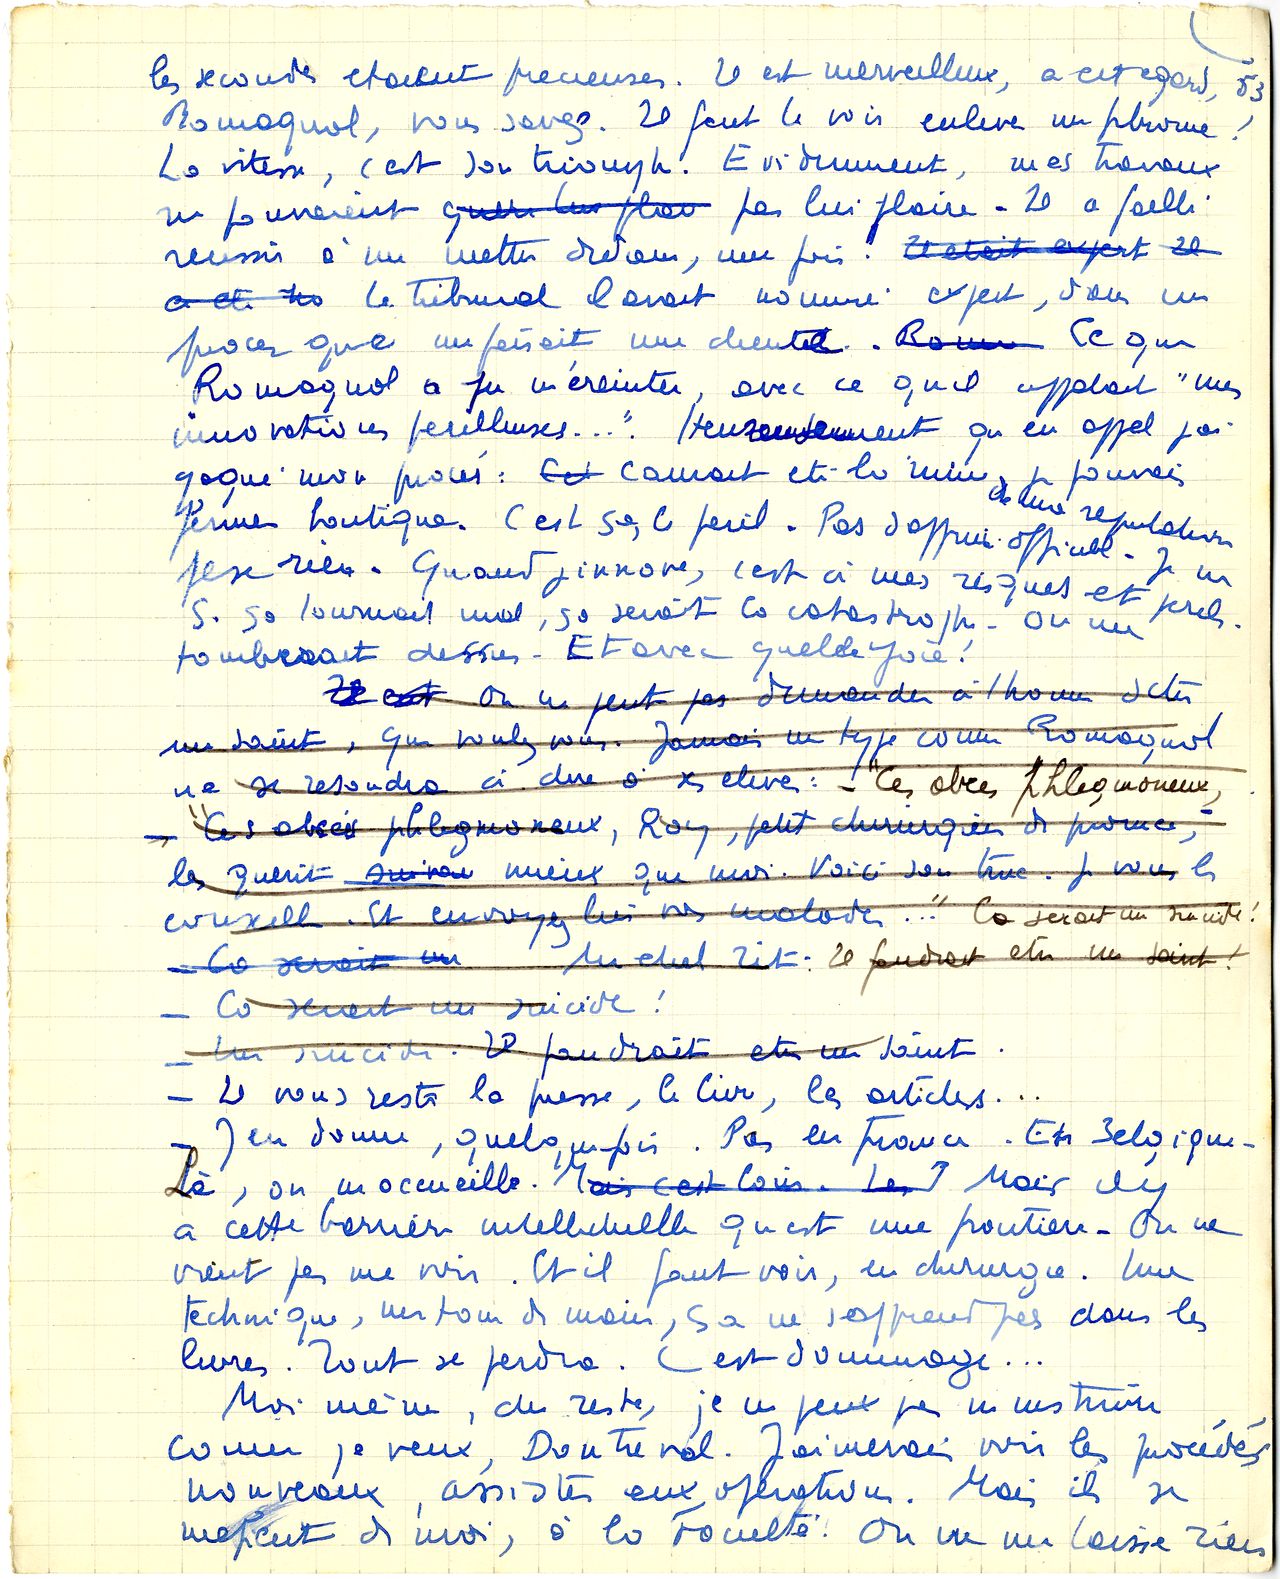 53
les secondes etaient precieuses. Il est merveilleux, a cet egard,
Romagnol, vous savez. Il faut le voir enlever un fibrome!
La vitesse, c'est son triomphe. Evidemment, mes travaux
ne pouvaient pas lui plaire - Il a failli
reussir à me mettre dedans, une fois: Il etait expert Il
a ete Le Tribunal l'avait nommé expert, dans un
proces que me faisait une cliente. Ce que
Romagnol a pu m'éreinter, avec ce qu'il appelait "mes
innovations perilleuses...". Heureusement qu'en appel j'ai
gagné mon procès: Ca aurait ete la ruine de ma reputation, je pouvais
fermer boutique. C'est ça, le peril. Pas d'appui officiel - Je ne
pese rien. Quand j'innove, c'est à mes risques et perils.
Si ça tournait mal, ça serait la catastrophe - On me
tomberait dessus - Et avec quelle joie!
Il est On ne peut pas demander à l'homme d'etre
un saint, que voulez vous. Jamais un type comme Romagnol
ne se resoudra à dire à ses eleves: - "Ces abces phlegmoneux,
- "Ces abcès phlegmoneux, Roy, petit chirurgien de province,
les guerit mieux que moi. Voici son truc. Je vous le
conseille. Et envoyez lui vos malades..." Ca serait un suicide!
- Ca serait un Michel rit: Il faudrait etre un saint!
- Ca serait un suicide!
- Un suicide. Il faudrait etre un saint.
- Il vous reste la presse, le livre, les articles...
- J'en donne, quelquefois. Pas en France. En Belgique -
Là, on m'accueille. Mais c'est loin. Les Mais il y
a cette barrière intellectuelle qu'est une frontiere - On ne
vient pas me voir. Et il faut voir, en chirurgie. Une
technique, un tour de main, ça ne s'apprend pas dans les
livres. Tout se perdra. C'est dommage...
Moi même, du reste, je ne peux pas m'instruire
comme je veux, Doutreval. J'aimerais voir les procédés
nouveaux, assister aux operations. Mais ils se
mefient de moi, à la Faculté. On ne me laisse rien